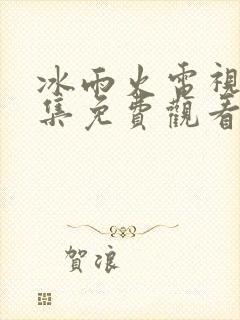 冰雨火電視
集免費觀看
賀浪